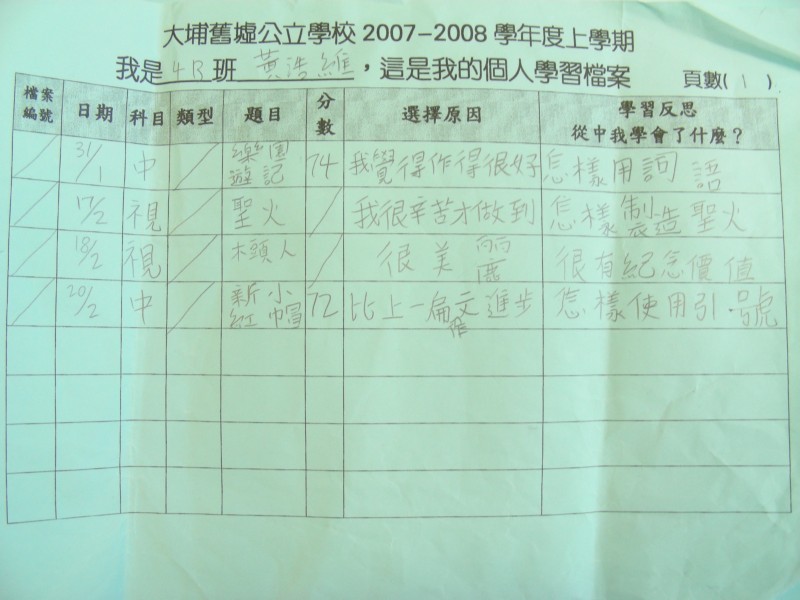 大埔舊墟公立學校 2007-2008 學年度上學期
我是 4B 班 黃浩維，這是我的個人學習檔案 頁數( 1 )
檔案編號 日期 科目 類型 題目 分數 選擇原因 學習反思 從中我學會了什麼？
31/1 中 樂園遊記 74 我覺得作得很好 怎樣用詞語
17/2 視 聖火 我很辛苦才做到 怎樣製造聖火
18/2 視 木頭人 很美麗 很有紀念價值
20/2 中 新小紅帽 72 比上一扁作文進步 怎樣使用引號